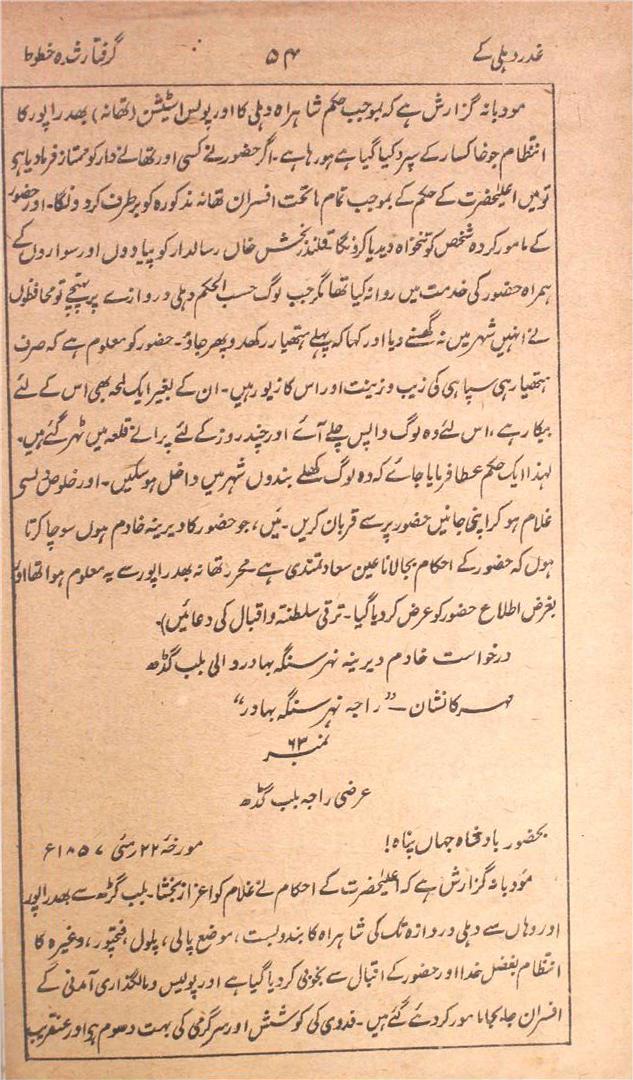 غدر دہلی کے
۵۴
گرفتار شدہ خطوط
مودبانہ گزارش ہے کہ بموجب حکم شاہراہ دہلی کا اور پولس اسٹیشن (تھانہ) بھدراپور کا
انتظام جو خاکسار کے سپرد کیا گیا ہے ہو رہا ہے۔ اگر حضور نے کسی اور تھانے دار کو ممتاز فرمادیا ہی
تو میں اعلیٰحضرت کے حکم کے بموجب تمام ماتحت افسران تھانہ مذکورہ کو برطرف کردونگا۔ اور حضور
کے مامور کردہ شخص کو تنخواہ دیدیا کرونگا قلندر بخش خاں رسالدار کو پیادوں اور سواروں کے
ہمراہ حضور کی خدمت میں روانہ کیا تھا مگر جب لوگ حسب الحکم دہلی دروازے پر پہنچے تو محافظوں
نے انہیں شہر میں نہ گھسنے دیا اور کہا کہ پہلے ہتھیار رکھدو پھر جاؤ۔ حضور کو معلوم ہے کہ صرف
ہتھیار ہی سپاہی کی زیب و زینت اور اس کا زیور ہیں۔ ان کے بغیر ایک لمحہ بھی اس کے لئے
بیکار ہے، اس لئے وہ لوگ واپس چلے آئے اور چند روز کے لئے پرانے قلعہ میں ٹھہر گئے ہیں۔
لہذا ایک حکم عطا فرمایا جائے کہ وہ لوگ کھلے بندوں شہر میں داخل ہو سکیں۔ اور خلوص نیتی سی
غلام ہو کر اپنی جانیں حضور پر سے قربان کریں۔ میں، جو حضور کا دیرینہ خادم ہوں سوچا کرتا
ہوں کہ حضور کے احکام بجالانا عین سعادتمندی ہے۔ محرر تھانہ بھدراپور سے یہ معلوم ہوا تھا اور
بغرض اطلاع حضور کو عرض کردیا گیا۔ ترقی سلطنت و اقبال کی دعائیں)۔
درخواست خادم دیرینہ نہر سنگہ بہادر والی بلب گڈھ
مہر کا نشان۔ "راجہ نہر سنگہ بہادر"
نمبر ۶۳
عرضی راجہ بلب گڈھ
بحضور بادشاہ جہاں پناہ!
مورخہ ۲۲ مئی ۱۸۵۷ء
مودبانہ گزارش ہے کہ اعلیٰحضرت کے احکام نے غلام کو اعزاز بخشا۔ بلب گڑھ سے بھدراپور
اور وہاں سے دہلی دروازہ تک کی شاہراہ کا بندوبست، موضع پالی، پلول، فتحپور، وغیرہ کا
انتظام بفضل خدا اور حضور کے اقبال سے بخوبی کردیا گیا ہے اور پولیس و مالگذاری آمدنی کے
افسران جابجا مامور کردئے گئے ہیں۔ فدوی کی کوشش اور سرگرمی کی بہت دھوم ہی اور عنقریب